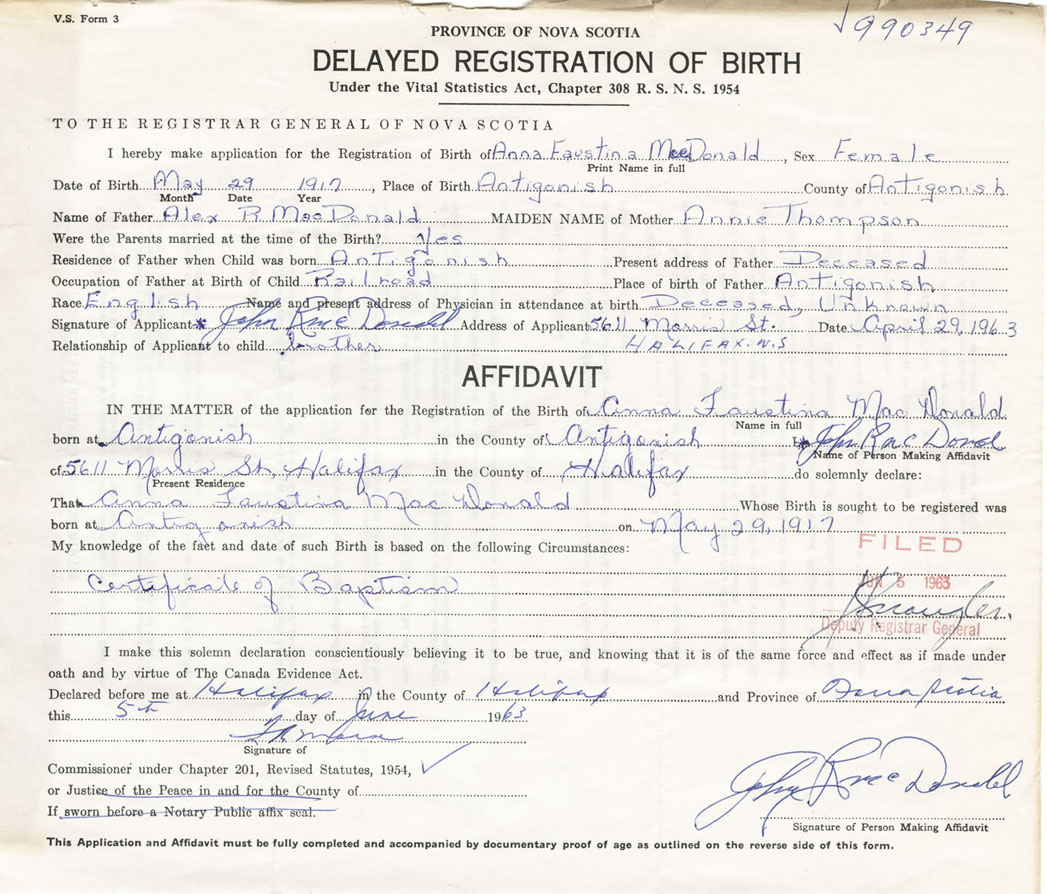 V.S. Form 3
PROVINCE OF NOVA SCOTIA
990349
DELAYED REGISTRATION OF BIRTH
Under the Vital Statistics Act, Chapter 308 R. S. N. S. 1954
TO THE REGISTRAR GENERAL OF NOVA SCOTIA
I hereby make application for the Registration of Birth of Anna Faustina MacDonald, Sex Female
Print Name in full
Date of Birth May 29 1917, Place of Birth Antigonish County of Antigonish
Month Date Year
Name of Father Alex R MacDonald MAIDEN NAME of Mother Annie Thompson
Were the Parents married at the time of the Birth? Yes
Residence of Father when Child was born Antigonish Present address of Father Deceased
Occupation of Father at Birth of Child Railroad Place of birth of Father Antigonish
Race English Name and present address of Physician in attendance at birth Deceased, Unknown
Signature of Applicant John R MacDonald Address of Applicant 5611 Morris St. Date April 29, 1963
Relationship of Applicant to child brother HALIFAX. N.S
AFFIDAVIT
IN THE MATTER of the application for the Registration of the Birth of Anna Faustina Mac Donald
Name in full
born at Antigonish in the County of Antigonish I, John R MacDonald
Name of Person Making Affidavit
of 5611 Morris St, Halifax in the County of Halifax do solemnly declare:
Present Residence
That Anna Faustina Mac Donald Whose Birth is sought to be registered was
born at Antigonish on May 29, 1917
My knowledge of the fact and date of such Birth is based on the following Circumstances:
FILED
Certificate of Baptism
JUN 5 1963
Deputy Registrar General
I make this solemn declaration conscientiously believing it to be true, and knowing that it is of the same force and effect as if made under
oath and by virtue of The Canada Evidence Act.
Declared before me at Halifax in the County of Halifax and Province of Nova Scotia
this 5th day of June 1963
Signature of
Commissioner under Chapter 201, Revised Statutes, 1954,
or Justice of the Peace in and for the County of
If sworn before a Notary Public affix seal.
John R MacDonald
Signature of Person Making Affidavit
This Application and Affidavit must be fully completed and accompanied by documentary proof of age as outlined on the reverse side of this form.